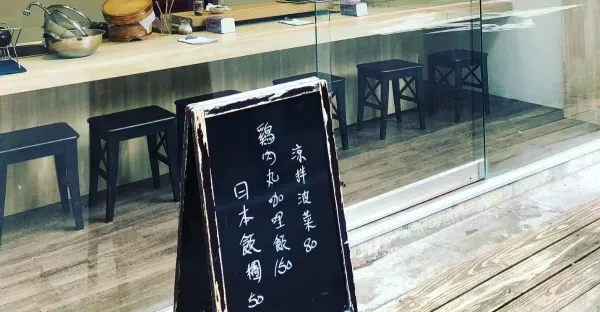 涼拌波菜 80
鷄肉丸咖哩飯 150
日本飯糰 50